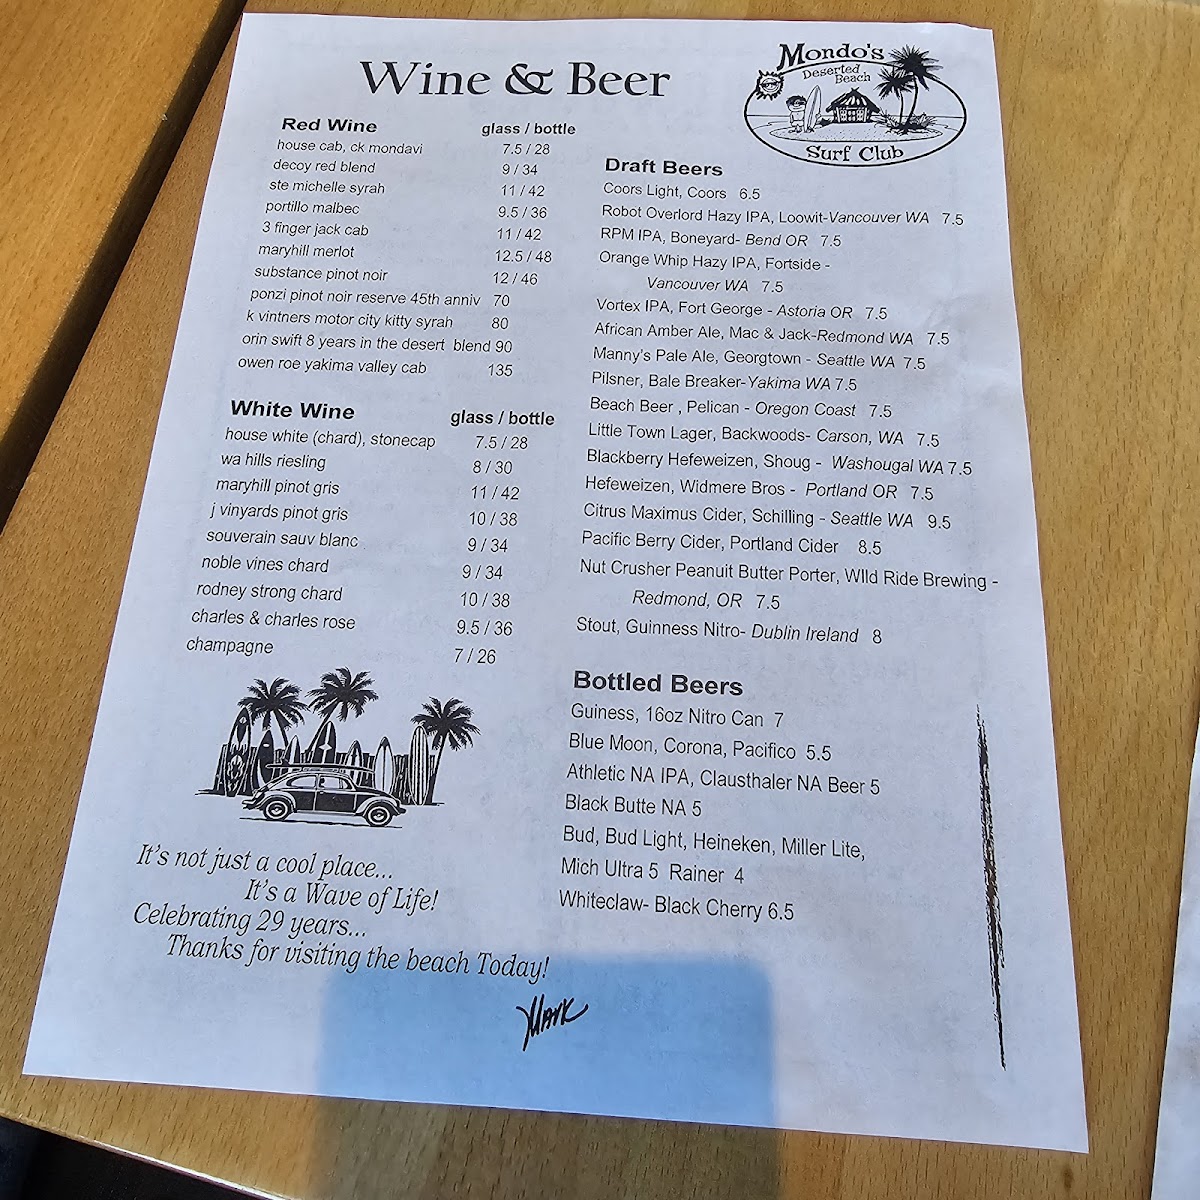 Wine & Beer
Mondo's
Deserted
Beach
Surf Club
Red Wine glass / bottle
house cab, ck mondavi 7.5 / 28
decoy red blend 9 / 34
ste michelle syrah 11 / 42
portillo malbec 9.5 / 36
3 finger jack cab 11 / 42
maryhill merlot 12.5 / 48
substance pinot noir 12 / 46
ponzi pinot noir reserve 45th anniv 70
k vintners motor city kitty syrah 80
orin swift 8 years in the desert blend 90
owen roe yakima valley cab 135
White Wine glass / bottle
house white (chard), stonecap 7.5 / 28
wa hills riesling 8 / 30
maryhill pinot gris 11 / 42
j vinyards pinot gris 10 / 38
souverain sauv blanc 9 / 34
noble vines chard 9 / 34
rodney strong chard 10 / 38
charles & charles rose 9.5 / 36
champagne 7 / 26
It's not just a cool place...
It's a Wave of Life!
Celebrating 29 years...
Thanks for visiting the beach Today!
Mark
Draft Beers
Coors Light, Coors 6.5
Robot Overlord Hazy IPA, Loowit-Vancouver WA 7.5
RPM IPA, Boneyard- Bend OR 7.5
Orange Whip Hazy IPA, Fortside -
Vancouver WA 7.5
Vortex IPA, Fort George - Astoria OR 7.5
African Amber Ale, Mac & Jack-Redmond WA 7.5
Manny's Pale Ale, Georgtown - Seattle WA 7.5
Pilsner, Bale Breaker-Yakima WA 7.5
Beach Beer , Pelican - Oregon Coast 7.5
Little Town Lager, Backwoods- Carson, WA 7.5
Blackberry Hefeweizen, Shoug - Washougal WA 7.5
Hefeweizen, Widmere Bros - Portland OR 7.5
Citrus Maximus Cider, Schilling - Seattle WA 9.5
Pacific Berry Cider, Portland Cider 8.5
Nut Crusher Peanuit Butter Porter, WIld Ride Brewing -
Redmond, OR 7.5
Stout, Guinness Nitro- Dublin Ireland 8
Bottled Beers
Guiness, 16oz Nitro Can 7
Blue Moon, Corona, Pacifico 5.5
Athletic NA IPA, Clausthaler NA Beer 5
Black Butte NA 5
Bud, Bud Light, Heineken, Miller Lite,
Mich Ultra 5 Rainer 4
Whiteclaw- Black Cherry 6.5